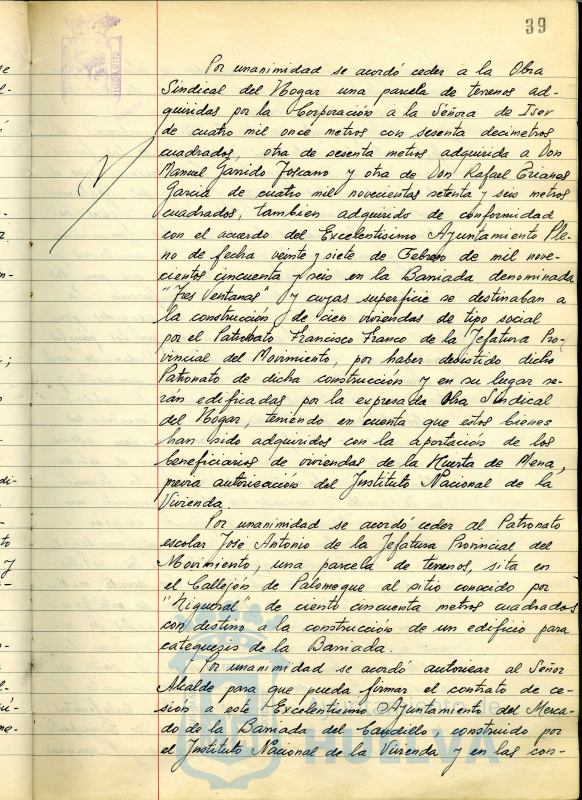 39
Por unanimidad se acordó ceder a la Obra
Sindical del Hogar una parcela de terrenos ad-
quiridas por la Corporación a la Señora de Isev
de cuatro mil once metros con sesenta decimetros
cuadrados, otra de sesenta metros adquirida a Don
Manuel Garrido Toscano y otra de Don Rafael Trianes
Garcia de cuatro mil novecientos setenta y seis metros
cuadrados, tambien adquirido de conformidad
con el acuerdo del Excelentisimo Ayuntamiento Ple-
no de fecha veinte y siete de Febrero de mil nove-
cientos cincuenta y seis en la Barriada denominada
"Tres Ventanas" y cuyas superficie se destinaban a
la construcción de cien viviendas de tipo social
por el Patronato Francisco Franco de la Jefatura Pro-
vincial del Movimiento, por haber desistido dicho
Patronato de dicha construcción y en su lugar se-
rán edificadas por la expresada Obra Sindical
del Hogar, teniendo en cuenta que estos bienes
han sido adquiridos con la aportación de los
beneficiarios de viviendas de la Huerta de Mena,
previa autorización del Instituto Nacional de la
Vivienda.
Por unanimidad se acordó ceder al Patronato
escolar José Antonio de la Jefatura Provincial del
Movimiento, una parcela de terrenos, sita en
el Callejón de Palomeque al sitio conocido por
"Higueral" de ciento cincuenta metros cuadrados
con destino a la construcción de un edificio para
catequesis de la Barriada.
Por unanimidad se acordó autorizar al Señor
Alcalde para que pueda firmar el contrato de ce-
sión a este Excelentisimo Ayuntamiento del Merca-
do de la Barriada del Caudillo, construido por
el Instituto Nacional de la Vivienda y en las con-